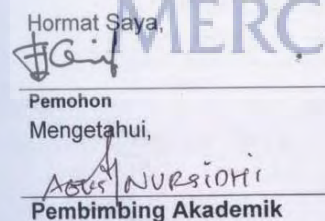 MERC
Hormat Saya,
Pemohon
Mengetahui,
Agus NURSIDHI
Pembimbing Akademik